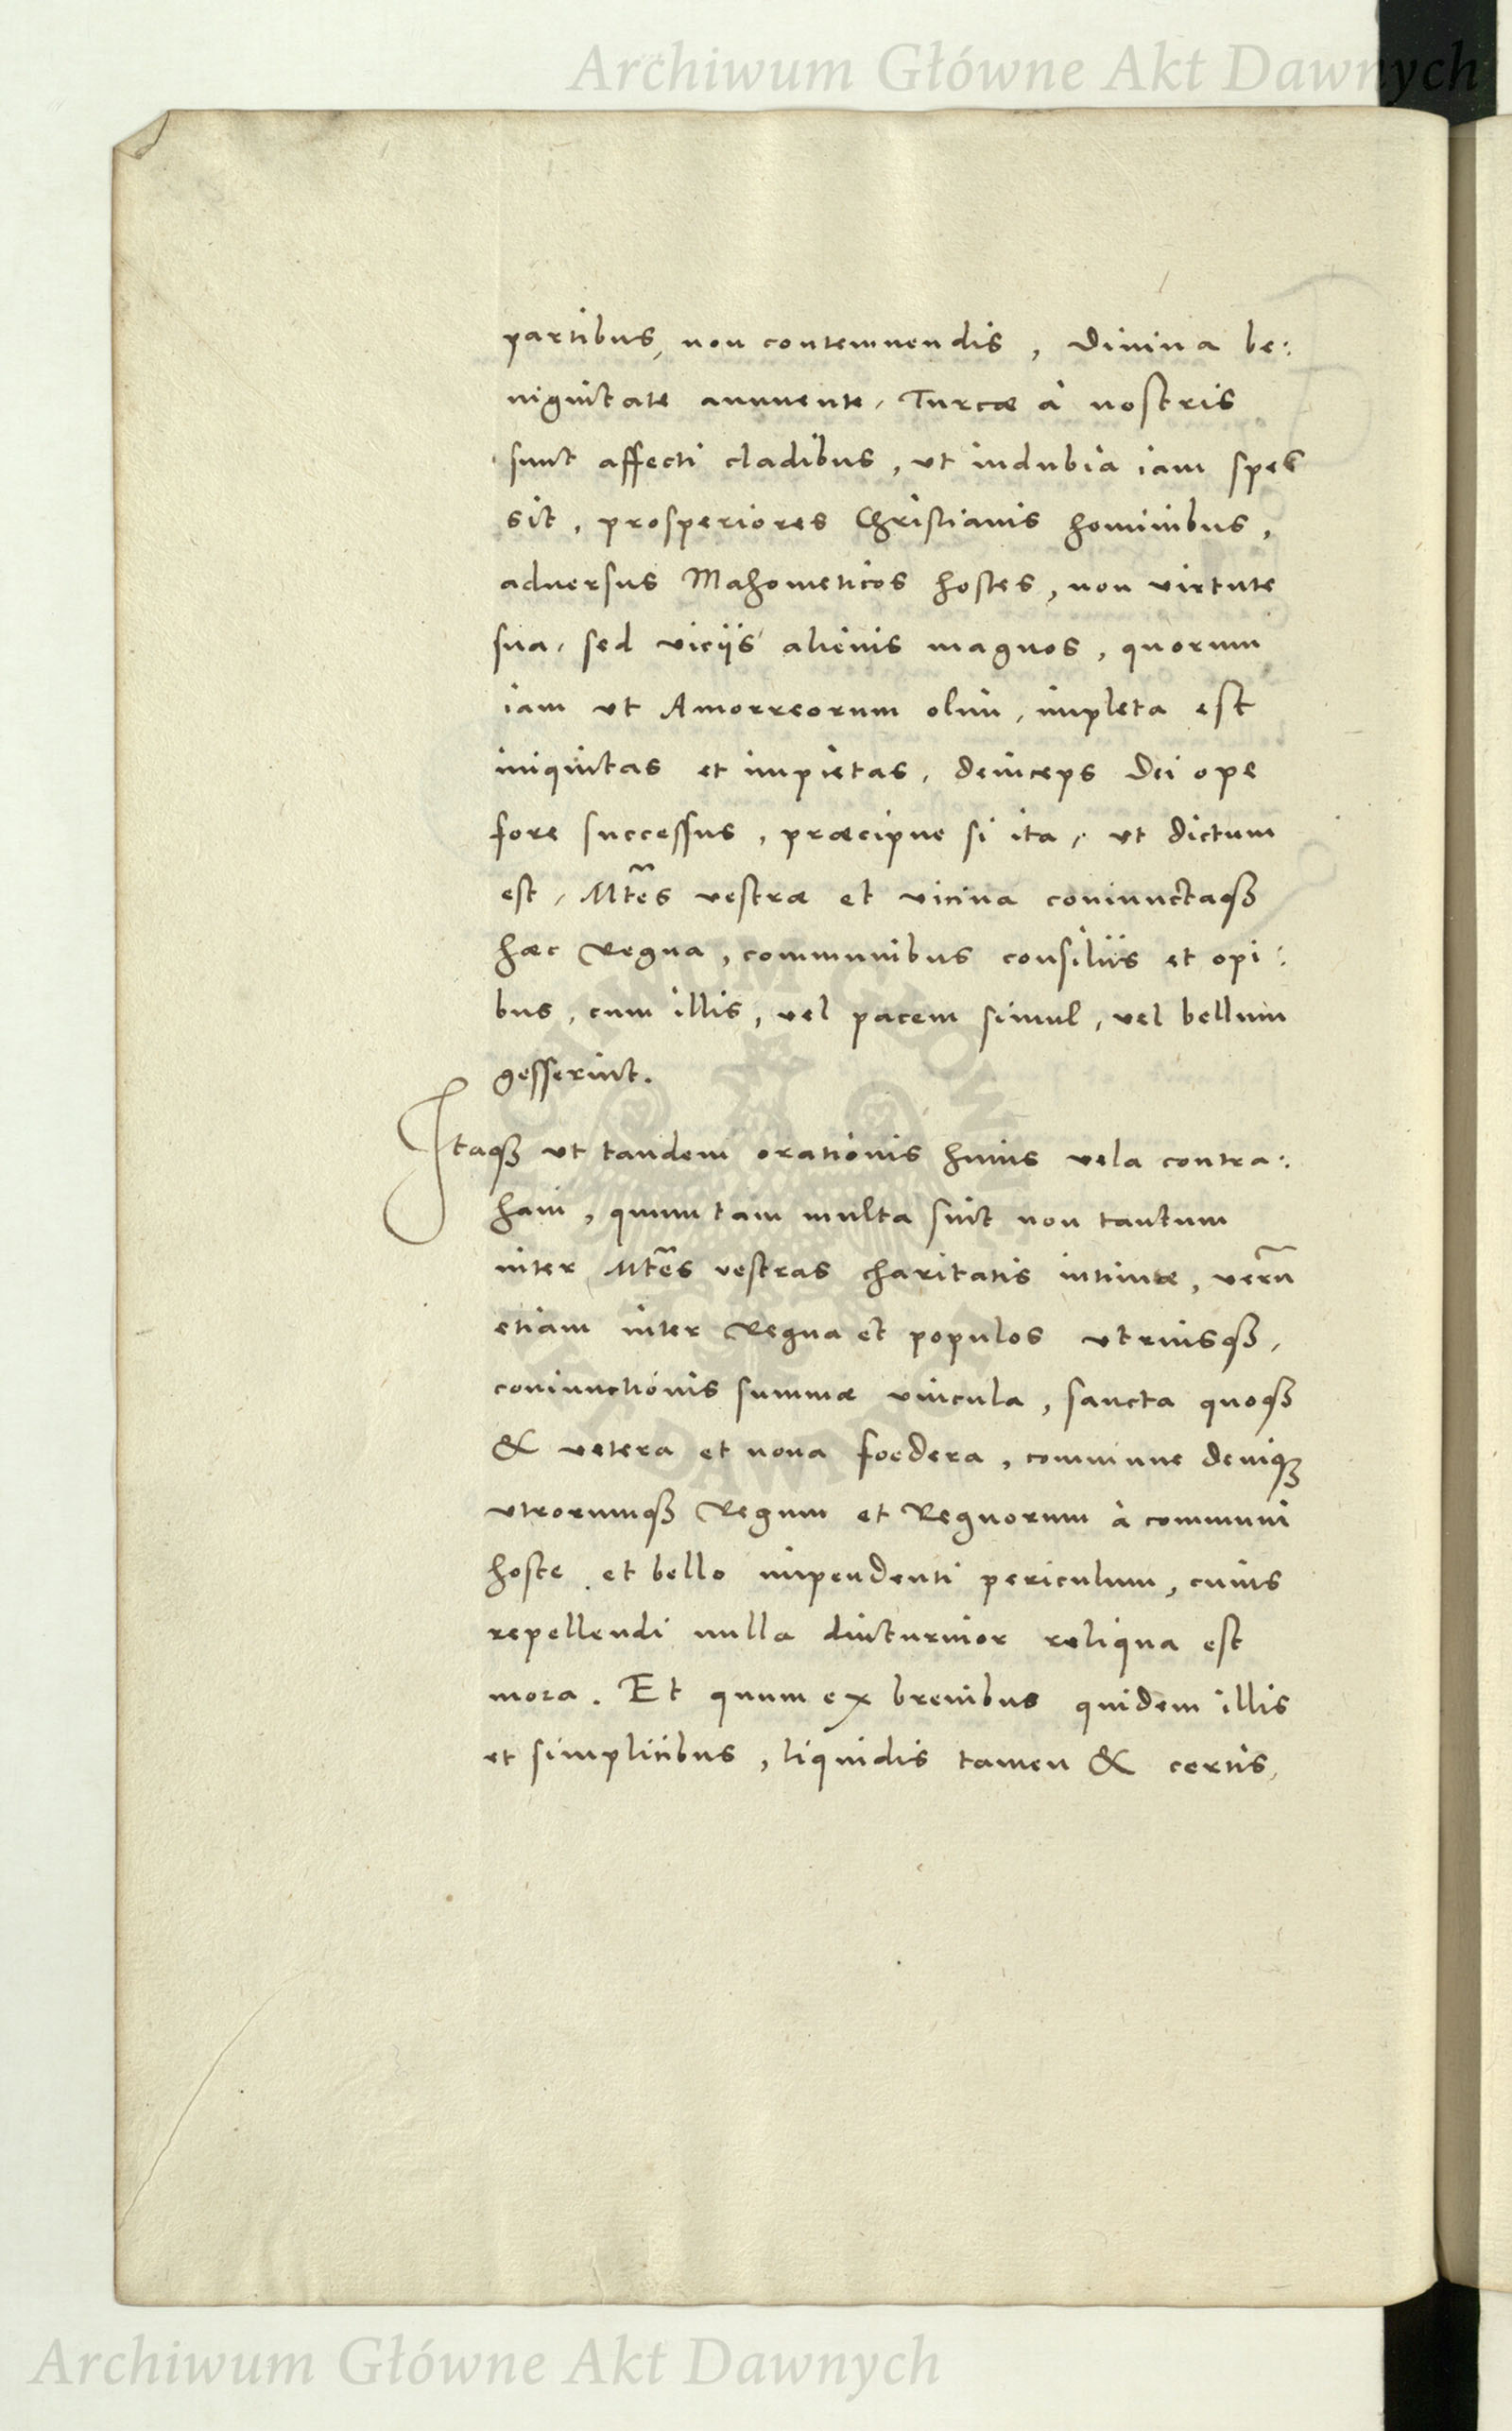 Archiwum Główne Akt Dawnych
partibus, non contemnendis, Divina be:
nignitate annuente, Turcæ à nostris
sunt affecti cladibus, ut indubia iam spes
sit, prosperiores Christianis hominibus,
adversus Mahometicos hostes, non virtute
sua, sed viciis alienis magnos, quorum
iam ut Amorreorum olim, impleta est
iniquitas et impietas, deinceps Dei ope
fore successus, præcipue si ita, ut dictum
est, Mtẽs vestræ et vicina coniunctaqꝫ
hæc Regna, communibus consiliis et opi:
bus, cum illis, vel pacem simul, vel bellum
gesserint.
Itaqꝫ ut tandem orationis huius vela contra:
ham, quum tam multa sint non tantum
inter Mtẽs vestras charitatis intimæ, verũ
etiam inter Regna et populos utriusqꝫ,
coniunctionis summæ vincula, sancta quoqꝫ
& vetera et nova foedera, commune deniqꝫ
utrorumqꝫ Regum et Regnorum à communi
hoste et bello impendenti periculum, cuius
repellendi nulla diuturnior reliqua est
mora. Et quum ex brevibus quidem illis
et simplicibus, liquidis tamen & certis,
Archiwum Główne Akt Dawnych